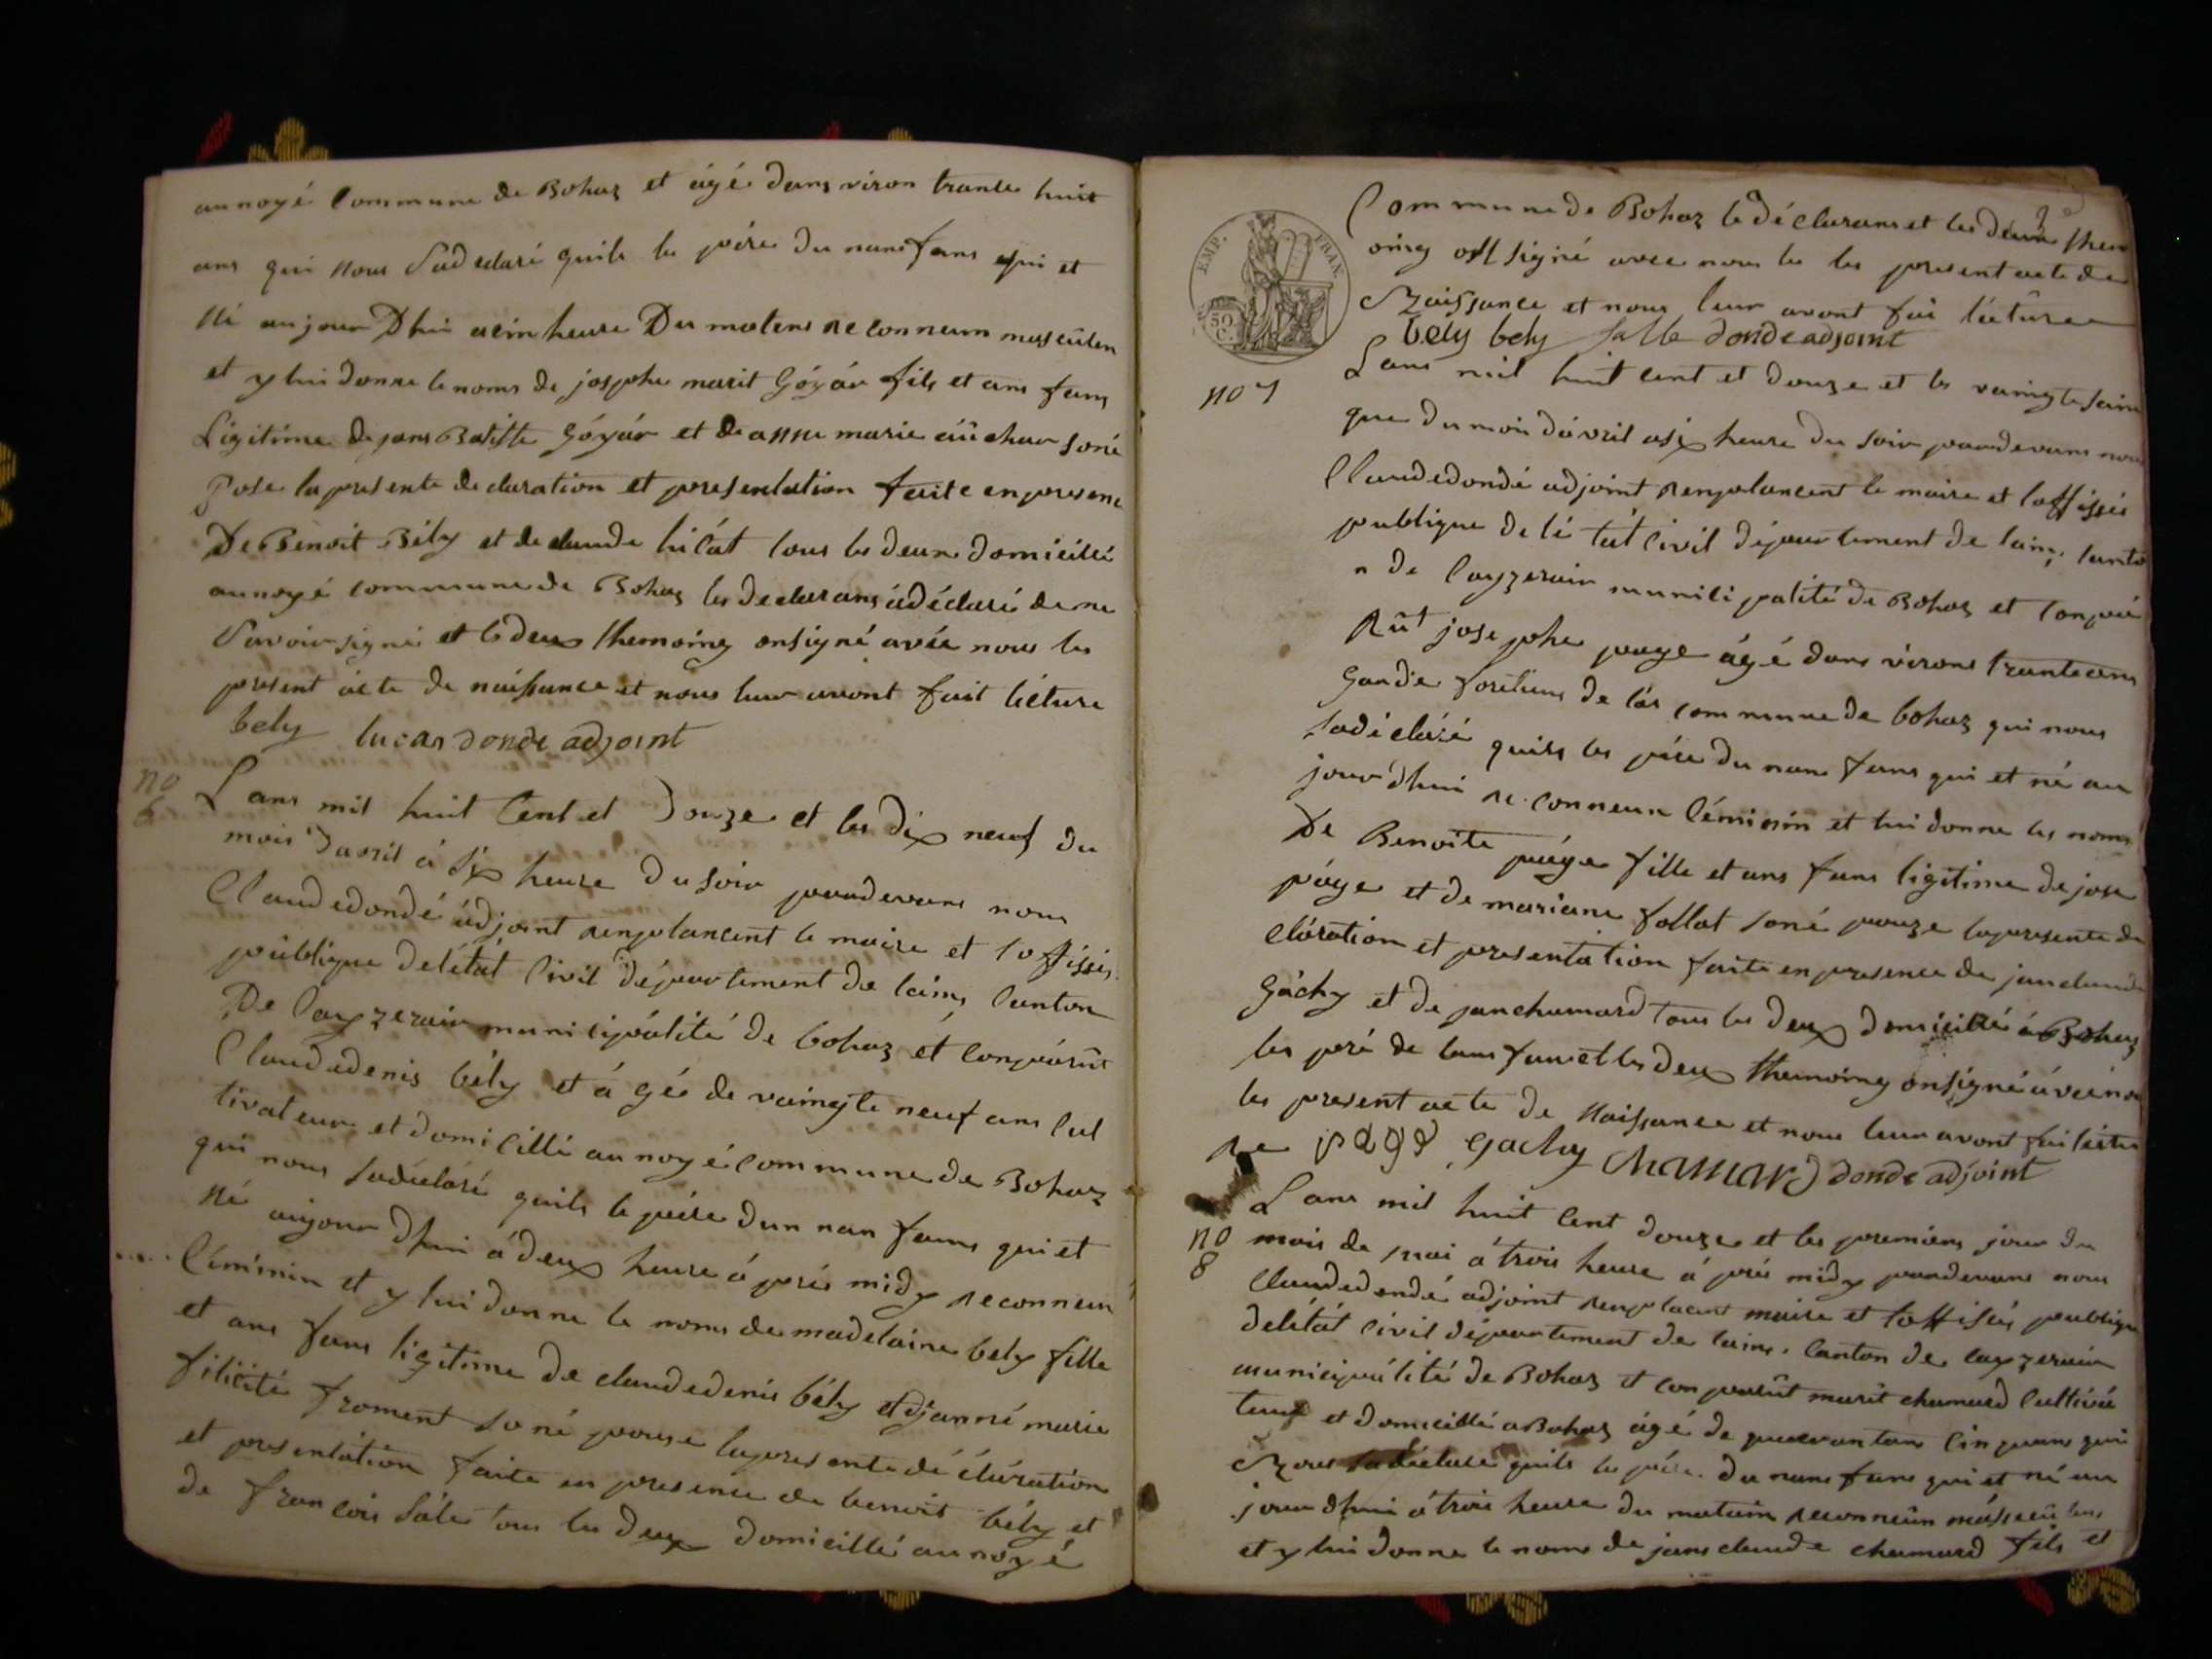 au noyé Commune de Bohaz et agé dans viron trante huit
ans qui nous Sadeclaré quils le pére du nans fans qui et
Né aujour Dhui acin heure Du matens reconneun masculen
et y lui donne le noms de josphe marit Góyár fils et ans fans
Ligitime de jans Batiste Góyár et de anne marie
Pose la presente declaration et presentation faite en presenc
De Benoit Bély et de claude lucat tous les deux domicillé
au noyé commune de Bohaz les declarans á déclaré de ne
Savoir signé et les deux themoing onsigné avée nous les
present ácte de naissance et nous leur avont fait lécture
bely lucas donde adjoint
no 6
Lans mil huit Cent et Douze et les dix neuf du
mois davril á six heure du soir pardevans nous
Claudedondé adjoint renplancent le maire et loffissié
publique delétat Civil département de lains Canton
De Cayzerain municipálité de bohaz et conparût
Claudedenis bély et á gé de vaingte neuf ans Cul
tivateur et domicillé au noyé commune de Bohaz
qui nous sadéclaré quils le pére dun nan fans qui et
Né aujour dhui á deux heure á prés midy reconneun
Céminin et y lui donne le noms de madelaine bely fille
et ans fans ligitime de claudedenis bély et djanné marie
filicité froment so né pouse la presente dé cláration
et presentátion faite en presence de benoit bély et
de francois Sále tous les deux domicillé au noyé
Commune de Bohaz le déclarans et les deux them
oing ont signé avec nous les present acte de
Naissance et nous leur avont fai lécture
bely bely salle donde adjoint
no 7
Lans mil huit cent et douze et les vaingte sain
que du mois dávril asix heure du soir pardevans nous
Claudedondé adjoint renplancent le maire et loffissié
publique de lé tát Civil département de lains, Canto
n de Cayzerain municipalité de Bohaz et Conpa
Rût josephe page ágé dans virons tranteans
Garde forétiens de lás commune de bohaz qui nous
sadéclaré quils les pére du nans fans qui et né au
jour dhui reconneun Céminin et lui donne les noms
De Benoite páge fille et ans fans ligitime de jose
páge et de mariane follat soné pouze la presente de
cláration et presentation faite en presence de jan claude
Gáchy et de jan chamard tous les deux domicillé á Bohaz
les peré de lans fans et les deux themoing onsigné ávée nou
les present acte de Naissance et nous leur avont fai léctu
re page gachy chamard donde adjoint
no 8
Lans mil huit Cent douze et les premiers jour du
mois de mai á trois heure á prés midy pardevans nous
Claudedondé adjoint renplacent maire et loffisiér publique
delétát Civil département de lains. Canton de cayzerain
municipálité de Bohaz et con parût marit chamard Cultivá
teur et domicillé a Bohaz ágé de quarantans Cin quans qui
Nous sadéclaré quils les pére du nans fans qui et né au
jour dhui á trois heure du matain reconneun másculens
et y lui donne le noms de jans claude chamard fils et